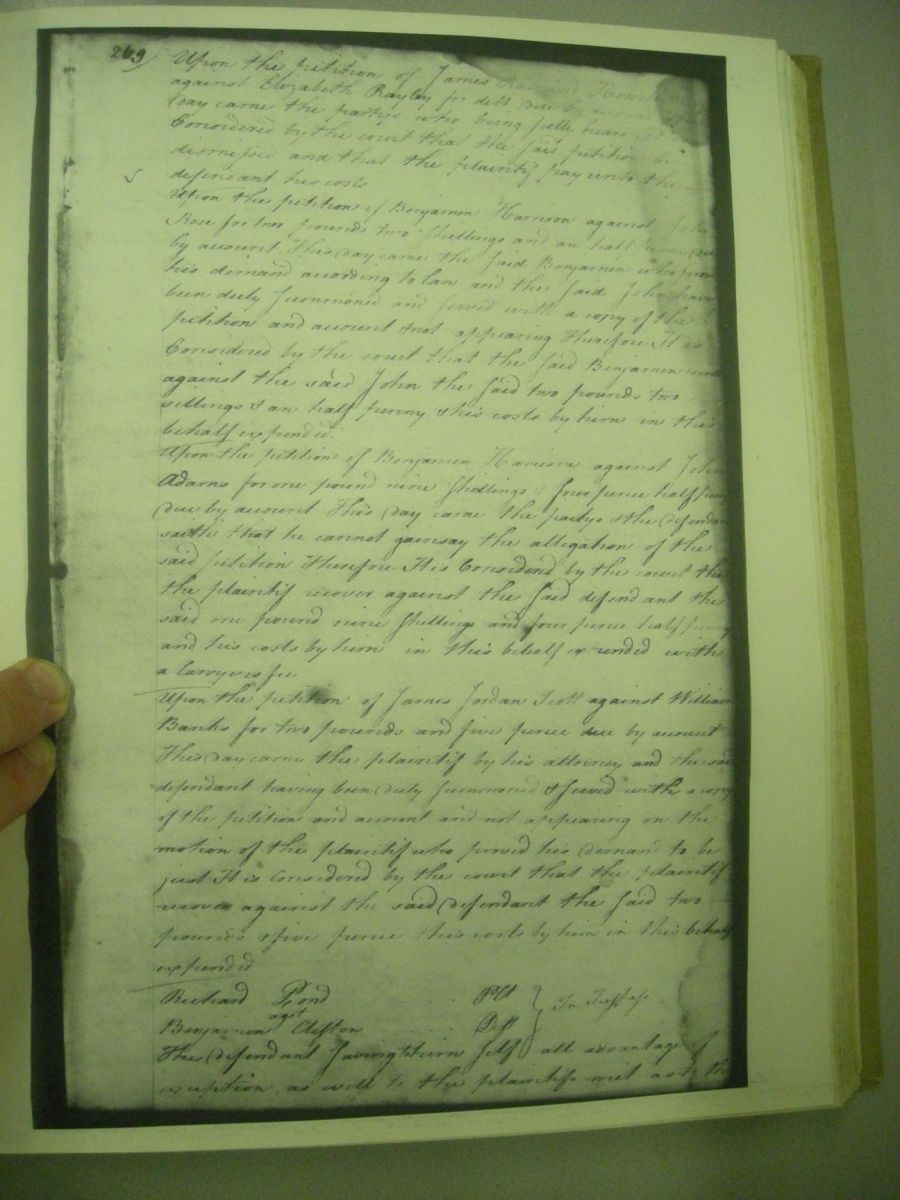 269
Upon the petition of James and Howell
against Elizabeth Rayley for debt due by
day came the partys who being fully heard It is
Considered by the court that the said petition be
dismissed and that the plaintif pay unto the
defendant his costs
Upon the petition of Benjamen Harrison against John
Rose for two pounds two shillings and an half penny due
by account This day came the said Benjamen who proved
his demand according to law and the said John have
been duly summoned and served with a copy of the
petition and account & not appearing Therefore It is
Considered by the court that the said Benjamen recover
against the said John the said two pounds two
sellings & an half penny & his costs by him in this
behalf expended.
Upon the petition of Benjamen Harrison against John
Adams for one pound nine shellings & four pence half penny
Due by account This day came the partys & the defendant
saith that he cannot gainsay the allegation of the
said petition Therefore It is Considered by the court that
the plaintif recover against the said defendant the
said one pound nine shellings and four pence half penny
and his costs by him in this behalf expended with
a lawyers fee
Upon the petition of James Jordan Scott against William
Banks for two pounds and five pence due by account
This day came the plaintif by his attorney and the said
defendant having been duly summoned & served with a copy
of the petition and account and not appearing on the
motion of the plaintif who proved his demand to be
just It is Considered by the court that the plaintif
recover against the said defendant the said two
pounds & five pence & his costs by him in this behalf
expended
Richard Pond Plt
agst In Tresspass
Benjamen Clifton Deft
The defendant saving to him self all advantage of
exception as well to the plaintifs writ as to the